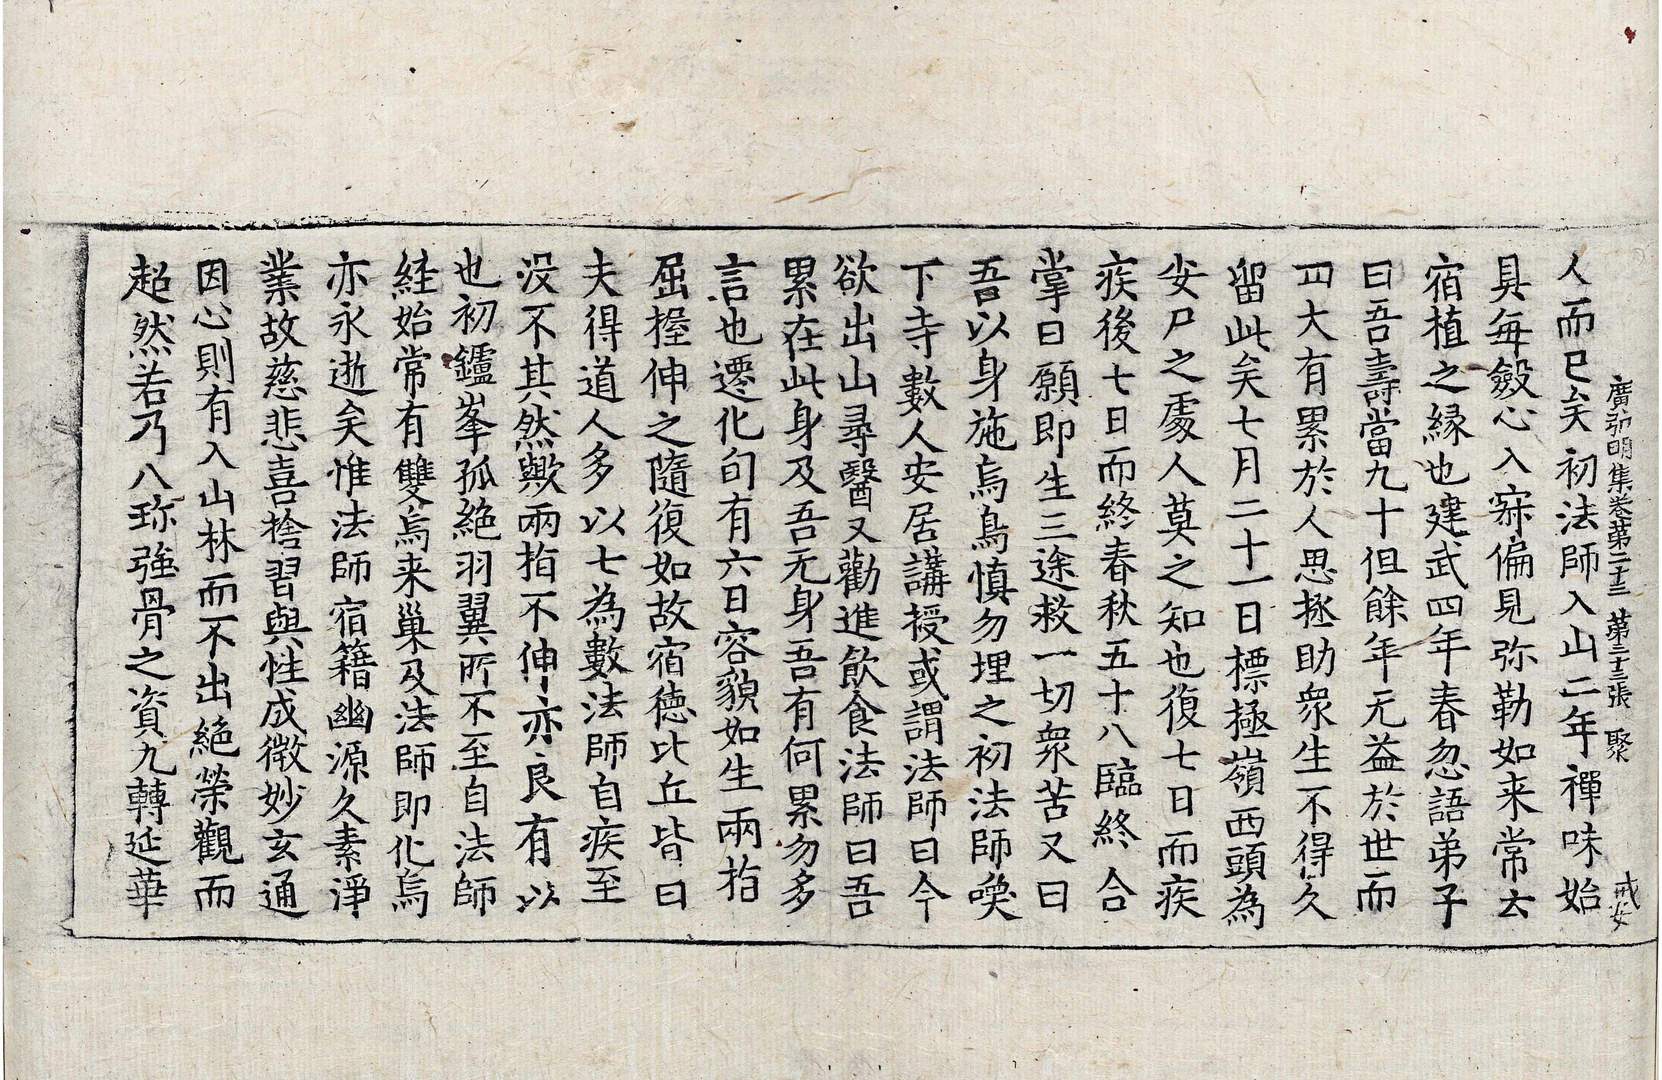 廣弘明集卷第二十三 第二十三張 聚
戒女
人而已矣初法師入山二年禪味始
具每斂心入寂偏見弥勒如来常云
宿植之緣也建武四年春忽語弟子
曰吾壽當九十但餘年无益於世而
四大有累於人思拯助衆生不得久
留此矣七月二十一日標極嶺西頭為
安尸之處人莫之知也復七日而疾
疾後七日而終春秋五十八臨終合
掌曰願即生三途救一切衆苦又曰
吾以身施烏鳥慎勿埋之初法師喚
下寺數人安居講授或謂法師曰今
欲出山尋醫又勸進飲食法師曰吾
累在此身及吾无身吾有何累勿多
言也遷化旬有六日容貌如生兩指
屈握伸之隨復如故宿德比丘皆曰
夫得道人多以七為數法師自疾至
没不其然歟兩指不伸亦良有以
也初鑪峯孤絕羽翼所不至自法師
経始常有雙烏来巢及法師即化烏
亦永逝矣惟法師宿籍幽源久素淨
業故慈悲喜捨習與性成微妙玄通
因心則有入山林而不出絕榮觀而
超然若乃八珎強骨之資九轉延華